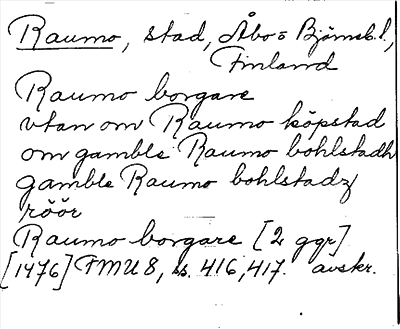 Raumo, stad, Åbo o Björneb. l.,
Finland
Raumo borgare
vtan om Raumo köpstad
om gamble Raumo bohlstadh
gamble Raumo bohlstadz
röör
Raumo borgare [2 ggr]
[1476] FMU 8, s. 416, 417. avskr.